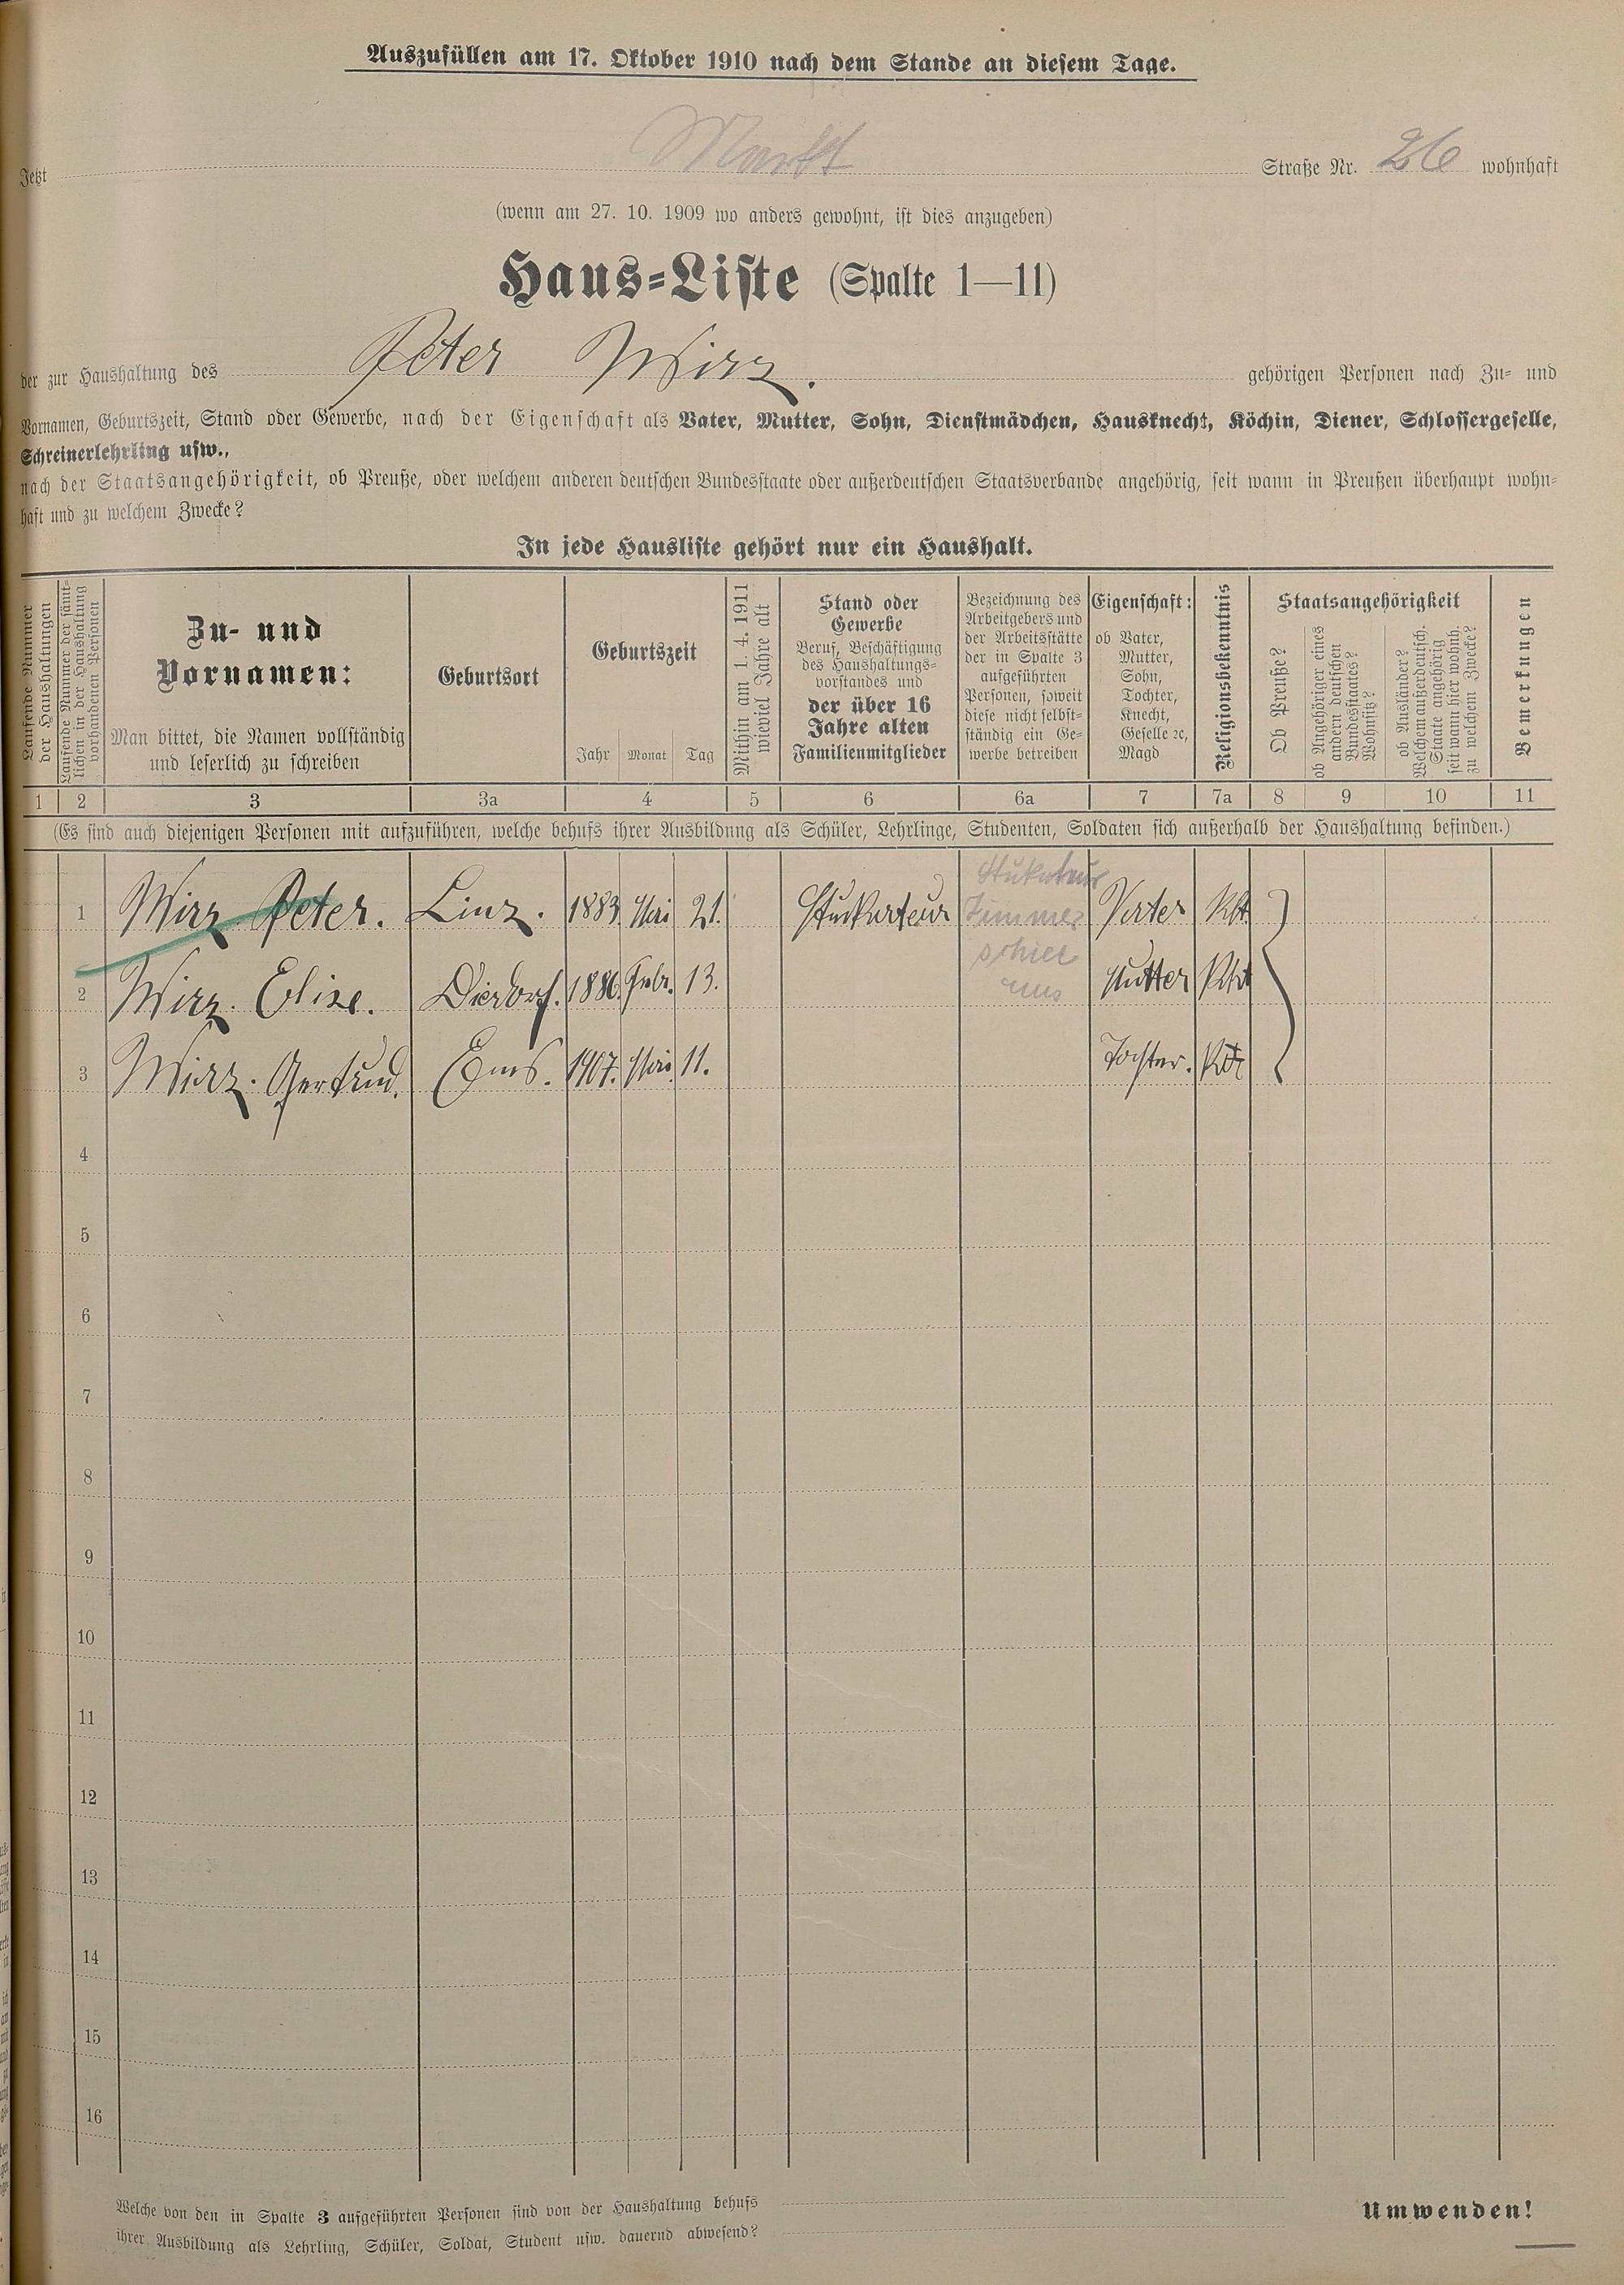 Auszufüllen am 17. Oktober 1910 nach dem Stande an diesem Tage.
Jetzt Markt Straße Nr. 26 wohnhaft
(wenn am 27. 10. 1909 wo anders gewohnt, ist dies anzugeben)
Haus-Liste (Spalte 1—11)
der zur Haushaltung des Peter Wirz. gehörigen Personen nach Zu- und
Vornamen, Geburtszeit, Stand oder Gewerbe, nach der Eigenschaft als Vater, Mutter, Sohn, Dienstmädchen, Hausknecht, Köchin, Diener, Schlossergeselle,
Schreinerlehrling usw.,
nach der Staatsangehörigkeit, ob Preuße, oder welchem anderen deutschen Bundesstaate oder außerdeutschen Staatsverbande angehörig, seit wann in Preußen überhaupt wohn-
haft und zu welchem Zwecke?
In jede Hausliste gehört nur ein Haushalt.
Laufende Nummer
der Haushaltungen
Laufende Nummer der sämt-
lichen in der Haushaltung
vorhandenen Personen
Zu- und
Vornamen:
Man bittet, die Namen vollständig
und leserlich zu schreiben
Geburtsort
Geburtszeit
Jahr Monat Tag
Mithin am 1. 4. 1911
wieviel Jahre alt
Stand oder
Gewerbe
Beruf, Beschäftigung
des Haushaltungs-
vorstandes und
der über 16
Jahre alten
Familienmitglieder
Bezeichnung des
Arbeitgebers und
der Arbeitsstätte
der in Spalte 3
aufgeführten
Personen, soweit
diese nicht selbst-
ständig ein Ge-
werbe betreiben
Eigenschaft:
ob Vater,
Mutter,
Sohn,
Tochter,
Knecht,
Geselle ꝛc,
Magd
Religionsbekenntnis
Staatsangehörigkeit
Ob Preuße?
ob Angehöriger eines
andern deutschen
Bundesstaates?
Wohnsitz?
ob Ausländer?
Welchem außerdeutsch.
Staate angehörig
seit wann hier wohnh.
zu welchem Zwecke?
Bemerkungen
1 2 3 3a 4 5 6 6a 7 7a 8 9 10 11
(Es sind auch diejenigen Personen mit aufzuführen, welche behufs ihrer Ausbildung als Schüler, Lehrlinge, Studenten, Soldaten sich außerhalb der Haushaltung befinden.)
1 Wirz. Peter. Linz. 1883. Mai 21. Stuckateur Vater Kth.
2 Wirz. Elise. Dierdorf. 1886. Febr. 13. Mutter Kth
3 Wirz. Gertrud. Ems. 1907. Mai 11. Tochter. Kth
4
5
6
7
8
9
10
11
12
13
14
15
16
Welche von den in Spalte 3 aufgeführten Personen sind von der Haushaltung behufs
ihrer Ausbildung als Lehrling, Schüler, Soldat, Student usw. dauernd abwesend?
Umwenden!